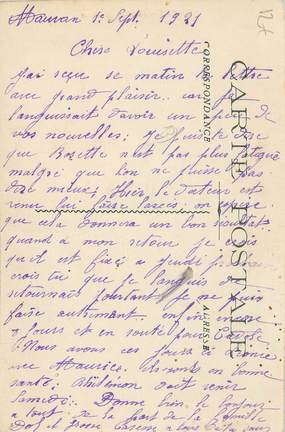 Mauvan 1e Sept. 1921
Chere Louisette
J'ai reçue se matin ta lettre
avec grand plaisir car je
languissait d'avoir un peu de
vos nouvelles; Je puis te dire
que Rosette n'est pas plus fatigué
malgré que l'on ne puisse pas
dire mieux; Hier, le docteur est
venu lui faire on espère
que cela donnera un bon résultat
quand a mon retour je crois
qu'il est fixé a Jeudi prochain
crois tu que je languis de
retournais pourtant je ne puis
faire autrement. enfin encore
jours et en route pour
Nous avons ces jours ci
avec Maurice. Ils sont en bonne
santé; doit venir
Samedi. Donne bien le bonjour
a tout de la part de la famille
et grosse Caresse a
CARTE POSTALE
CORRESPONDANCE
ADRESSE